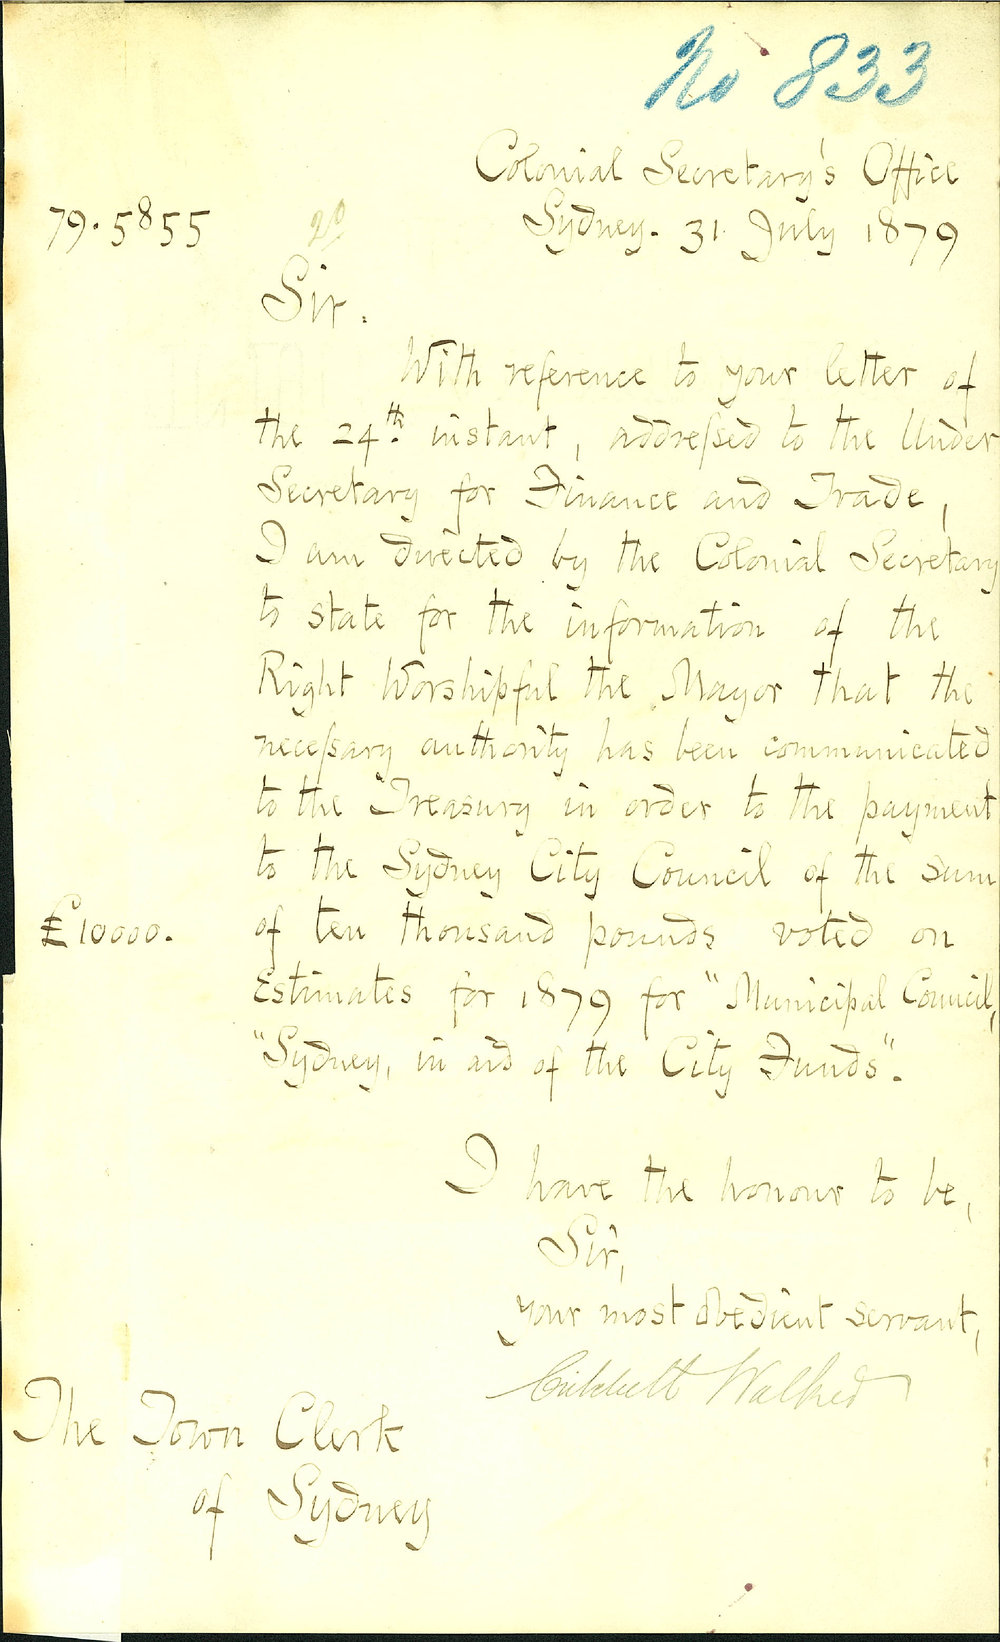 No 833
Colonial Secretary's Office
79.5855
Sydney. 31 July 1879
Sir.
With reference to your letter of
the 24th. instant, addreſsed to the Under
Secretary for Finance and Trade,
I am directed by the Colonial Secretary
to state for the information of the
Right Worshipful the Mayor that the
neceſsary authority has been communicated
to the Treasury in order to the payment
to the Sydney City Council of the sum
£10000.
of ten thousand pounds voted on
Estimates for 1879 for "Municipal Council,
"Sydney, in aid of the City Funds".
I have the honour to be,
Sir,
your most obedient servant,
The Town Clerk
of Sydney